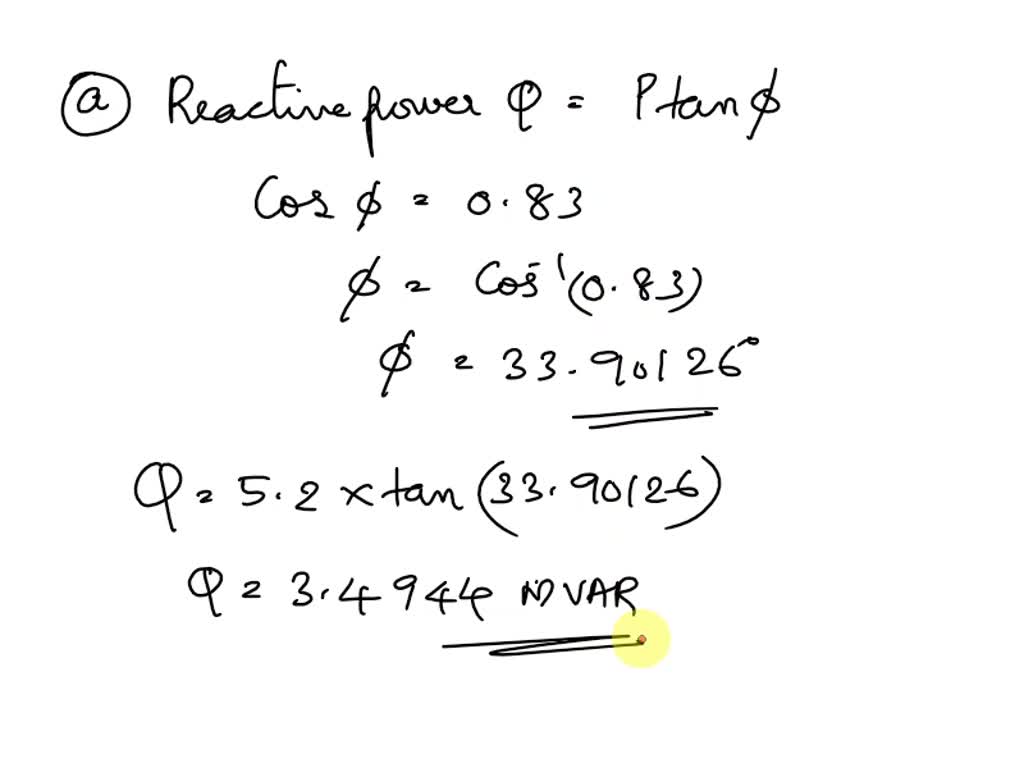 (a) Reactive power Q = P tan ϕ
Cos ϕ = 0.83
ϕ = Cos⁻¹(0.83)
ϕ = 33.90126°
Q = 5.2 x tan (33.90126)
Q = 3.4944 MVAR